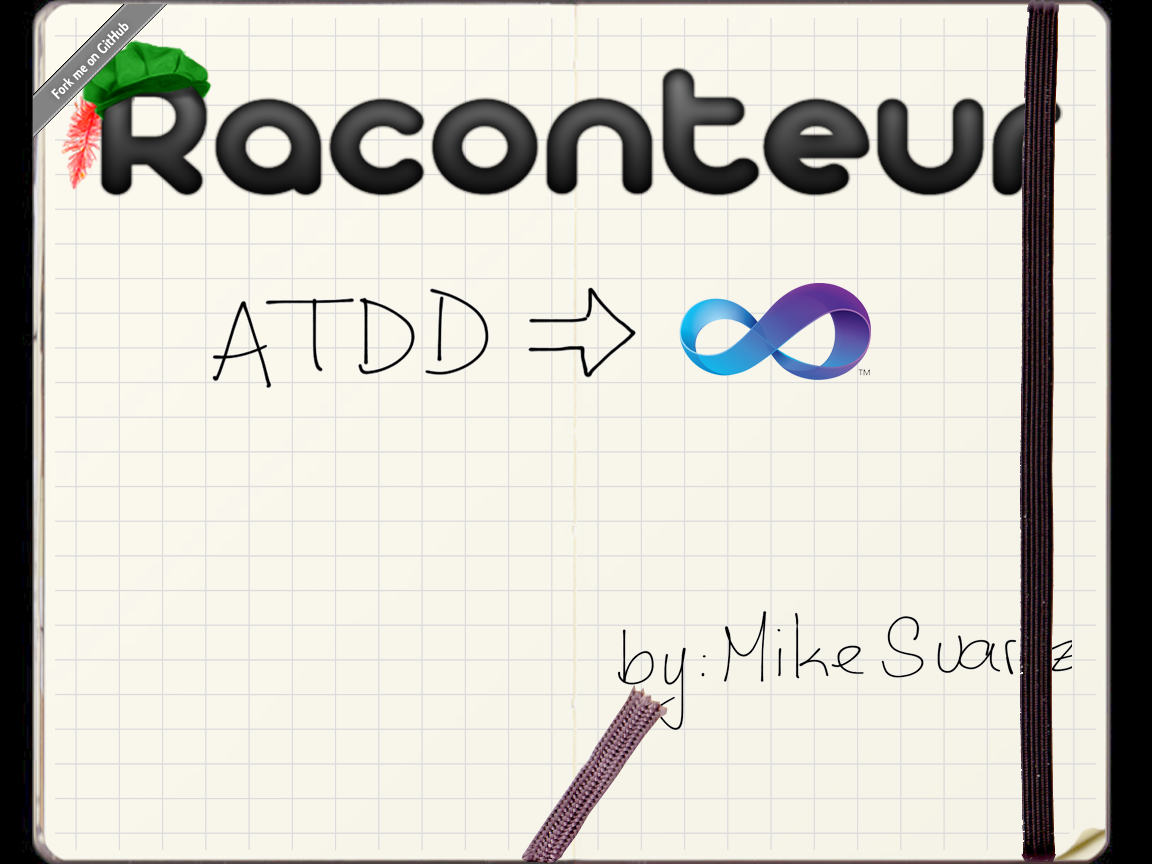 Fork me on GitHub
Raconteur
ATDD ⇒
TM
by: Mike